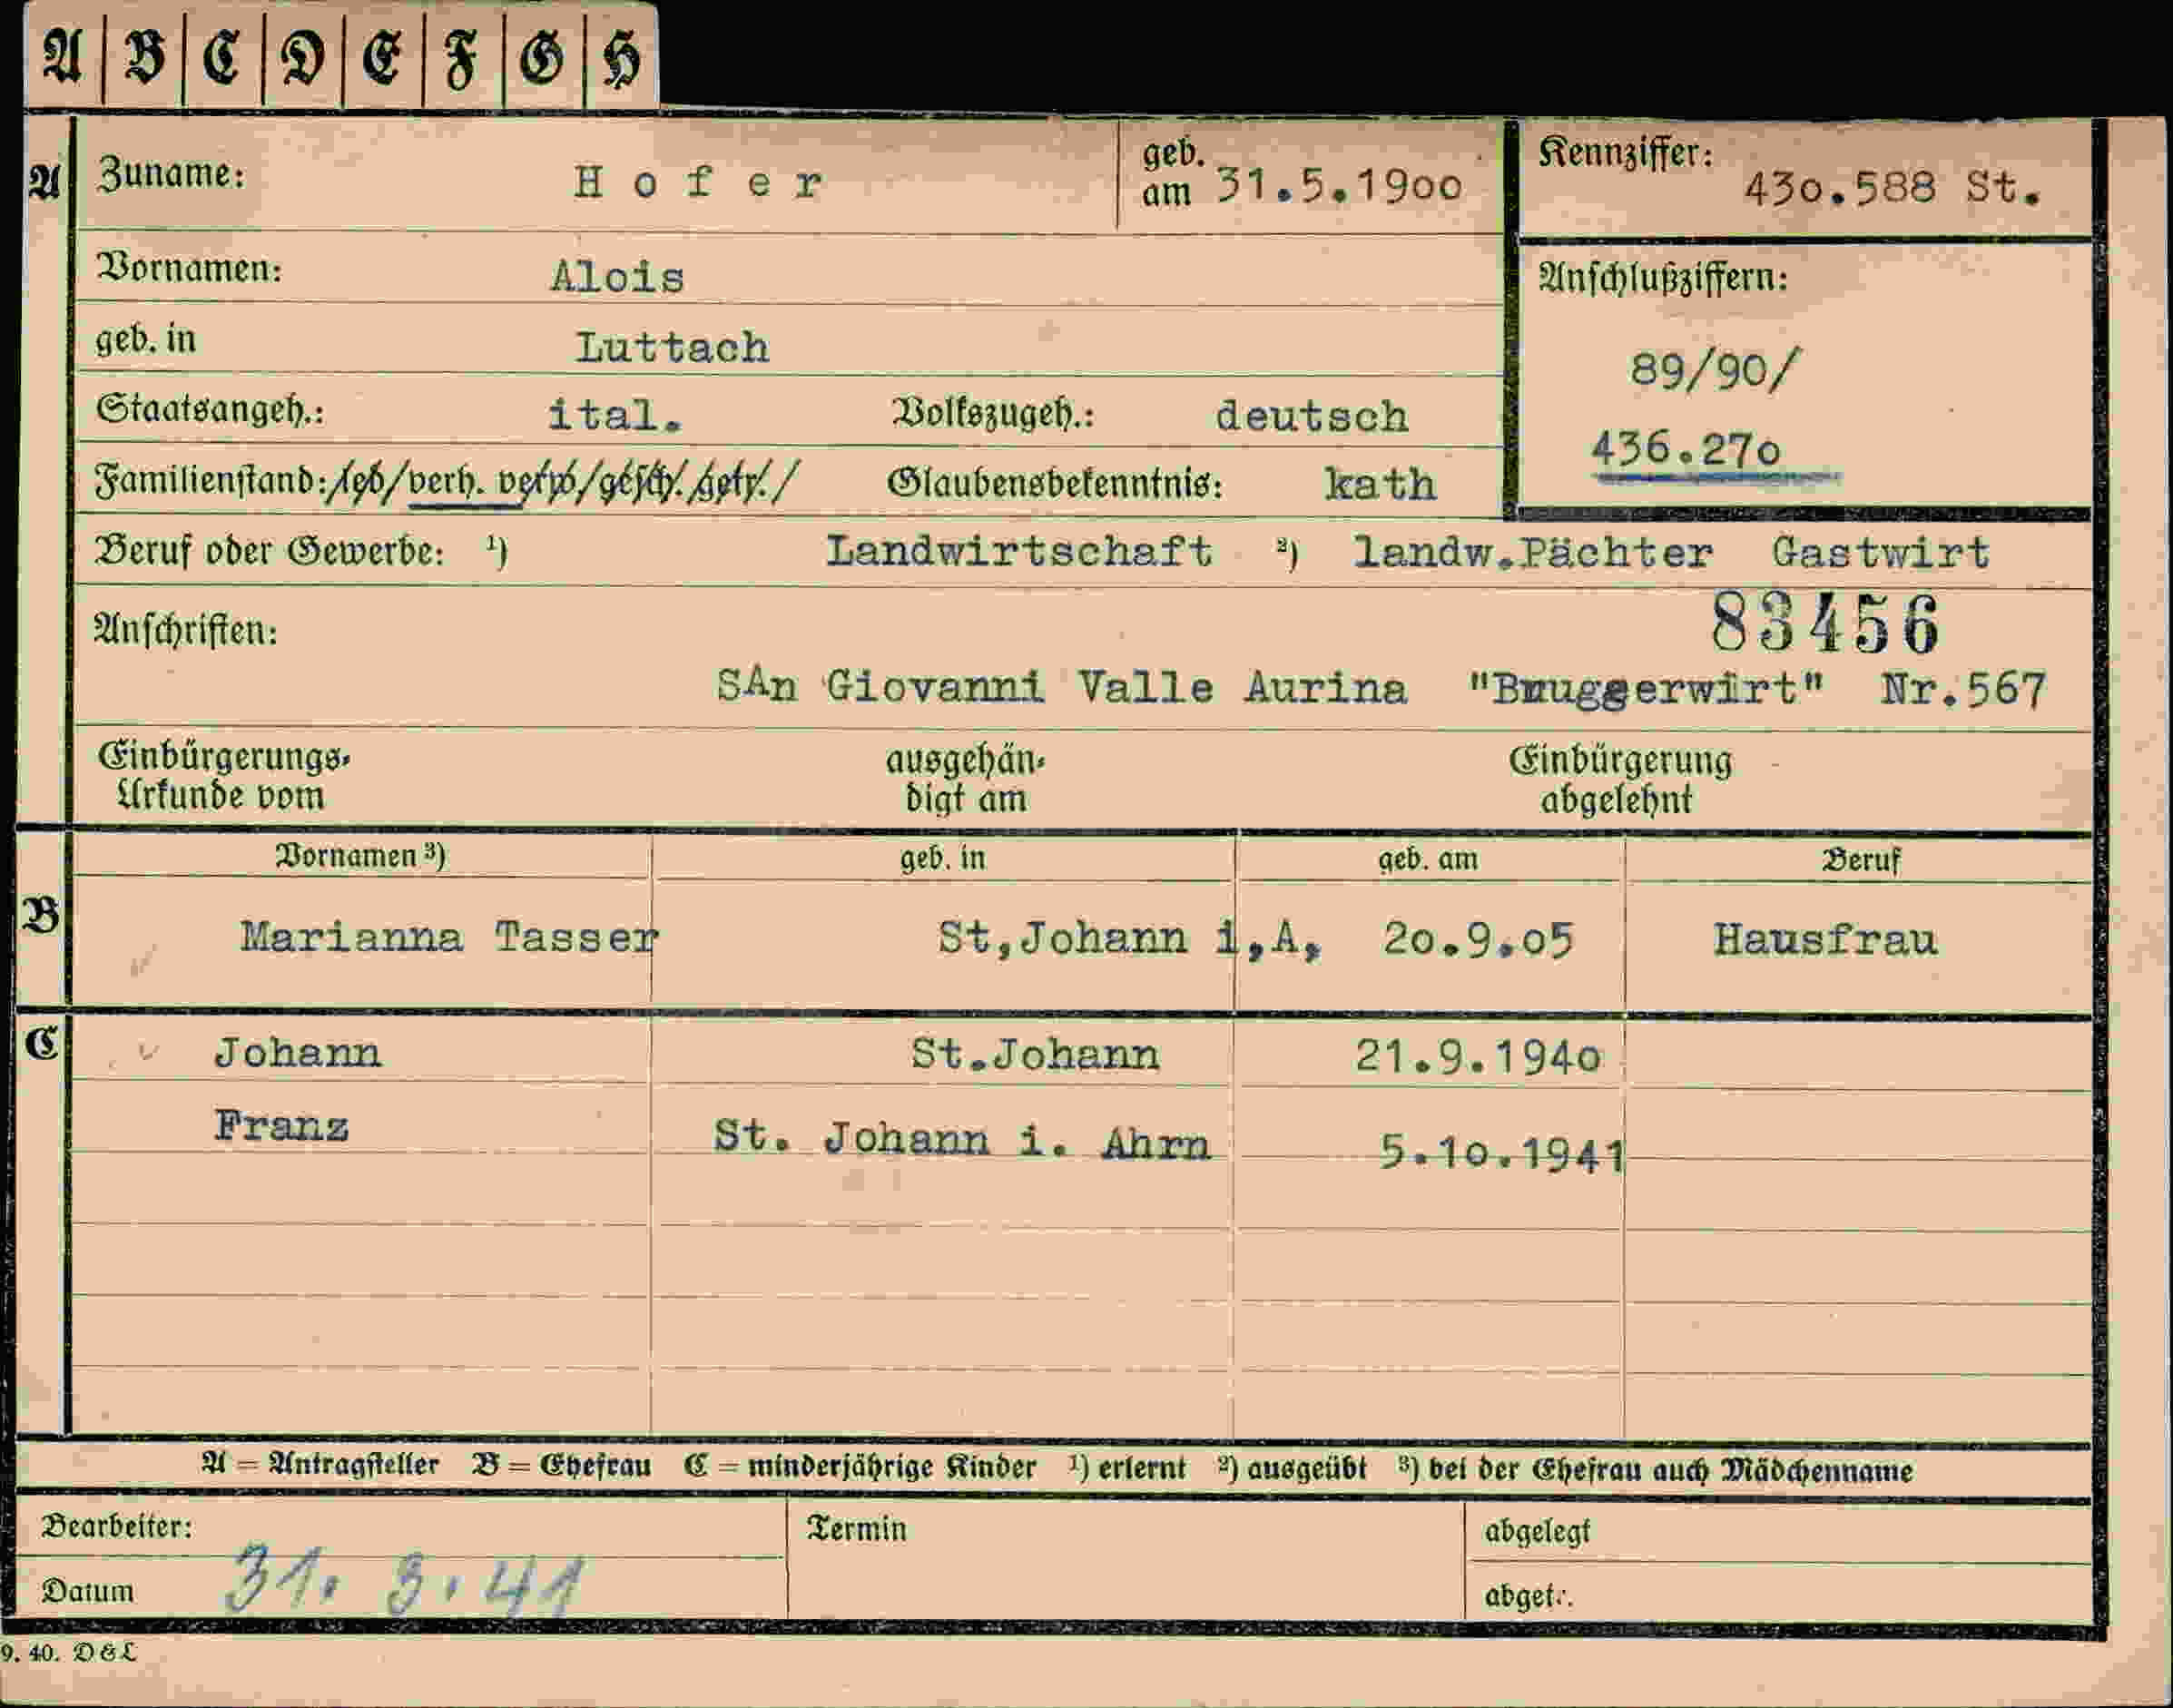 A B C D E F G H
A Zuname: Hofer geb. am 31.5.1900 Kennziffer: 430.588 St.
Vornamen: Alois Anschlußziffern:
geb. in Luttach 89/90/
Staatsangeh.: ital. Volkszugeh.: deutsch 436.270
Familienstand: led/verh. verw/gesch./getr./ Glaubensbekenntnis: kath
Beruf oder Gewerbe: ¹) Landwirtschaft ²) landw.Pächter Gastwirt
Anschriften: 83456
SAn Giovanni Valle Aurina "Bruggerwirt" Nr.567
Einbürgerungs- ausgehän- Einbürgerung
Urkunde vom digt am abgelehnt
Vornamen ³) geb. in geb. am Beruf
B Marianna Tasser St,Johann i,A, 20.9.05 Hausfrau
C Johann St.Johann 21.9.1940
Franz St. Johann i. Ahrn 5.10.1941
A = Antragsteller B = Ehefrau C = minderjährige Kinder ¹) erlernt ²) ausgeübt ³) bei der Ehefrau auch Mädchenname
Bearbeiter: Termin abgelegt
Datum 31. 3. 41 abget.:
9. 40. D&L